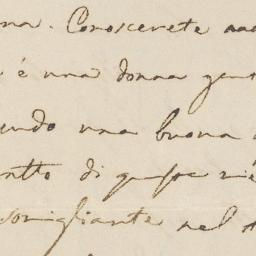 na. Conoscerete
è una donna gen
endo una buona
tto di queste
somigliante nel